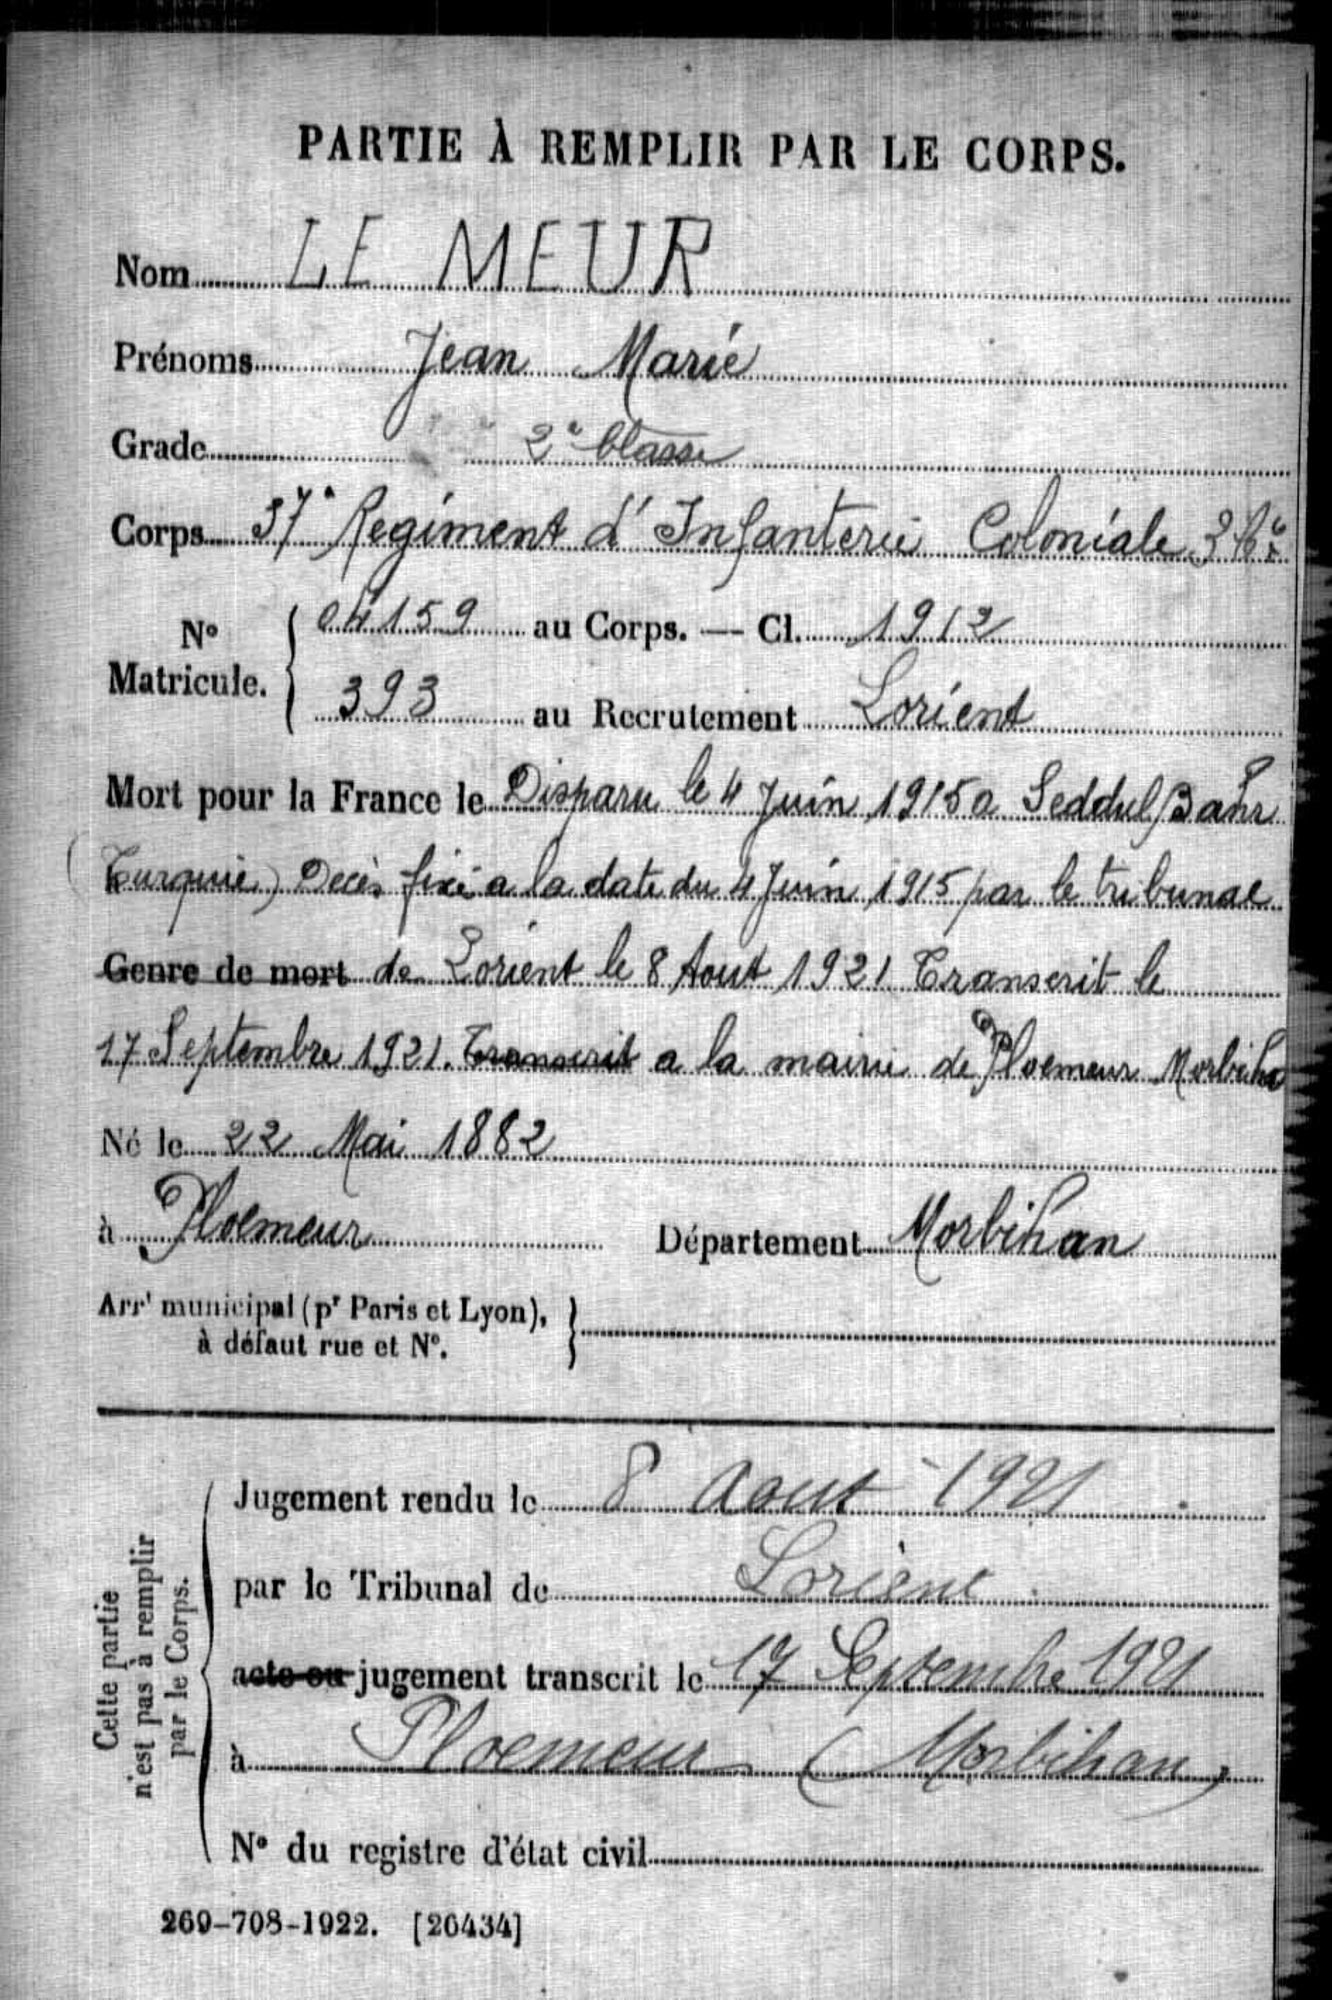 PARTIE À REMPLIR PAR LE CORPS.
Nom LE MEUR
Prénoms Jean Marie
Grade 2e Classe
Corps 37e Regiment d'Infanterie Coloniale
No Matricule. 04159 au Corps. — Cl. 1912
393 au Recrutement Lorient
Mort pour la France le Disparu le 4 Juin 1915 a Seddul Bahr
(Turquie) Decès fixé a la date du 4 Juin 1915 par le tribunal
Genre de mort de Lorient le 8 Aout 1921 Transcrit le
17 Septembre 1921. Transcrit a la mairie de Ploemeur Morbihan
Né le 22 Mai 1882
à Ploemeur Département Morbihan
Arrt municipal (pr Paris et Lyon),
à défaut rue et No.
Cette partie
n'est pas à remplir
par le Corps.
Jugement rendu le 8 Aout 1921
par le Tribunal de Lorient
acte ou jugement transcrit le 17 Septembre 1921
à Ploemeur (Morbihan)
No du registre d'état civil
269-708-1922. [26434]